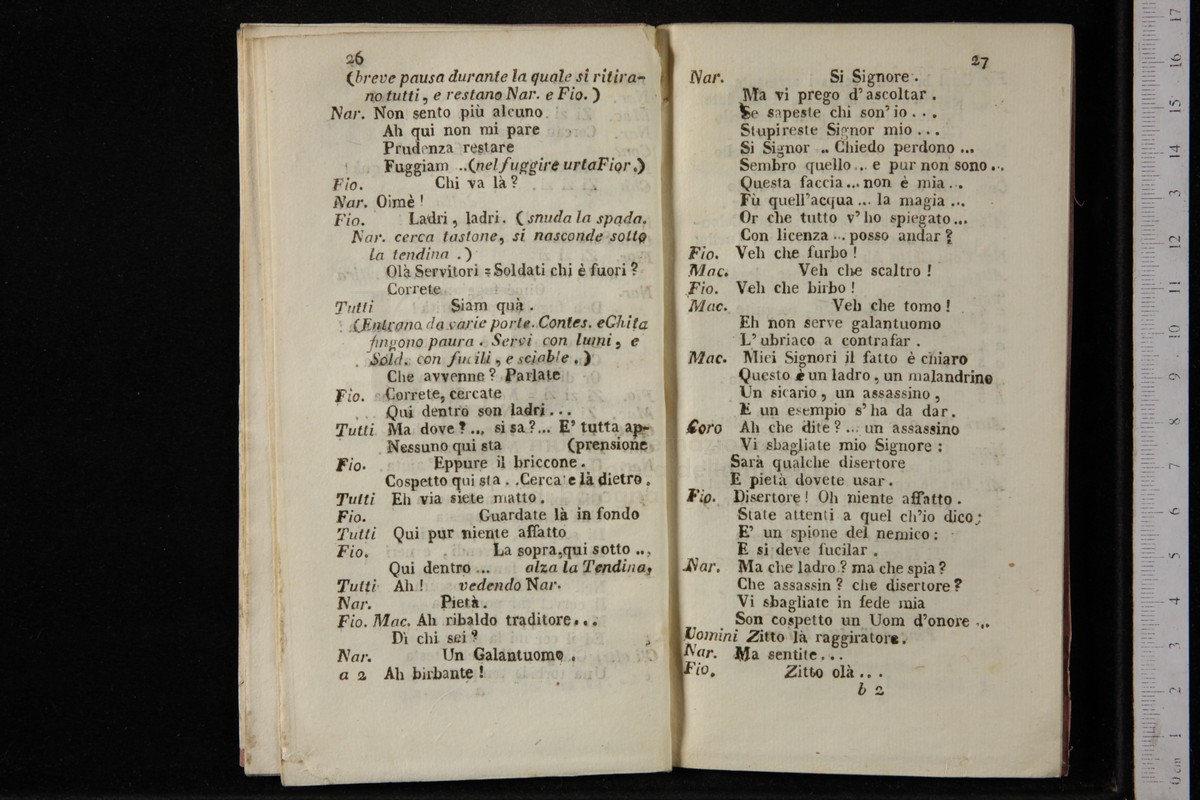 26
(breve pausa durante la quale si ritira-
no tutti, e restano Nar. e Fio. )
Nar. Non sento più alcuno
Ah qui non mi pare
Prudenza restare
Fuggiam ..(nel fuggire urta Fior.)
Fio. Chi va là?
Nar. Oimè!
Fio. Ladri, ladri. (snuda la spada.
Nar. cerca tastone, si nasconde sotto
la tendina .)
Olà Servitori = Soldati chi è fuori?
Correte
Tutti Siam quà.
(Entrano da varie porte. Contes. e Ghita
fingono paura. Servi con lumi, e
Sold. con fucili, e sciable.)
Che avvenne? Parlate
Fio. Correte, cercate
Qui dentro son ladri...
Tutti Ma dove?... si sa?... E' tutta ap-
Nessuno qui sta (prensione
Fio. Eppure il briccone.
Cospetto qui sta . .Cercate là dietro.
Tutti Eh via siete matto.
Fio. Guardate là in fondo
Tutti Qui pur niente affatto
Fio. La sopra, qui sotto ..,
Qui dentro ... alza la Tendina,
Tutti Ah! vedendo Nar.
Nar. Pietà.
Fio. Mac. Ah ribaldo traditore...
Di chi sei?
Nar. Un Galantuomo.
a 2 Ah birbante!
27
Nar. Si Signore.
Ma vi prego d'ascoltar.
Se sapeste chi son' io...
Stupireste Signor mio...
Si Signor .. Chiedo perdono ...
Sembro quello... e pur non sono...
Questa faccia... non è mia...
Fù quell'acqua ... la magia ...
Or che tutto v'ho spiegato...
Con licenza ... posso andar?
Fio. Veh che furbo!
Mac. Veh che scaltro!
Fio. Veh che birbo!
Mac. Veh che tomo!
Eh non serve galantuomo
L'ubriaco a contrafar.
Mac. Miei Signori il fatto è chiaro
Questo è un ladro, un malandrino
Un sicario, un assassino,
E un esempio s'ha da dar.
Coro Ah che dite?... un assassino
Vi sbagliate mio Signore:
Sarà qualche disertore
E pietà dovete usar.
Fio. Disertore! Oh niente affatto.
State attenti a quel ch'io dico:
E' un spione del nemico:
E si deve fucilar.
Nar. Ma che ladro? ma che spia?
Che assassin? che disertore?
Vi sbagliate in fede mia
Son cospetto un Uom d'onore ...
Uomini Zitto là raggiratore.
Nar. Ma sentite...
Fio. Zitto olà...
b 2